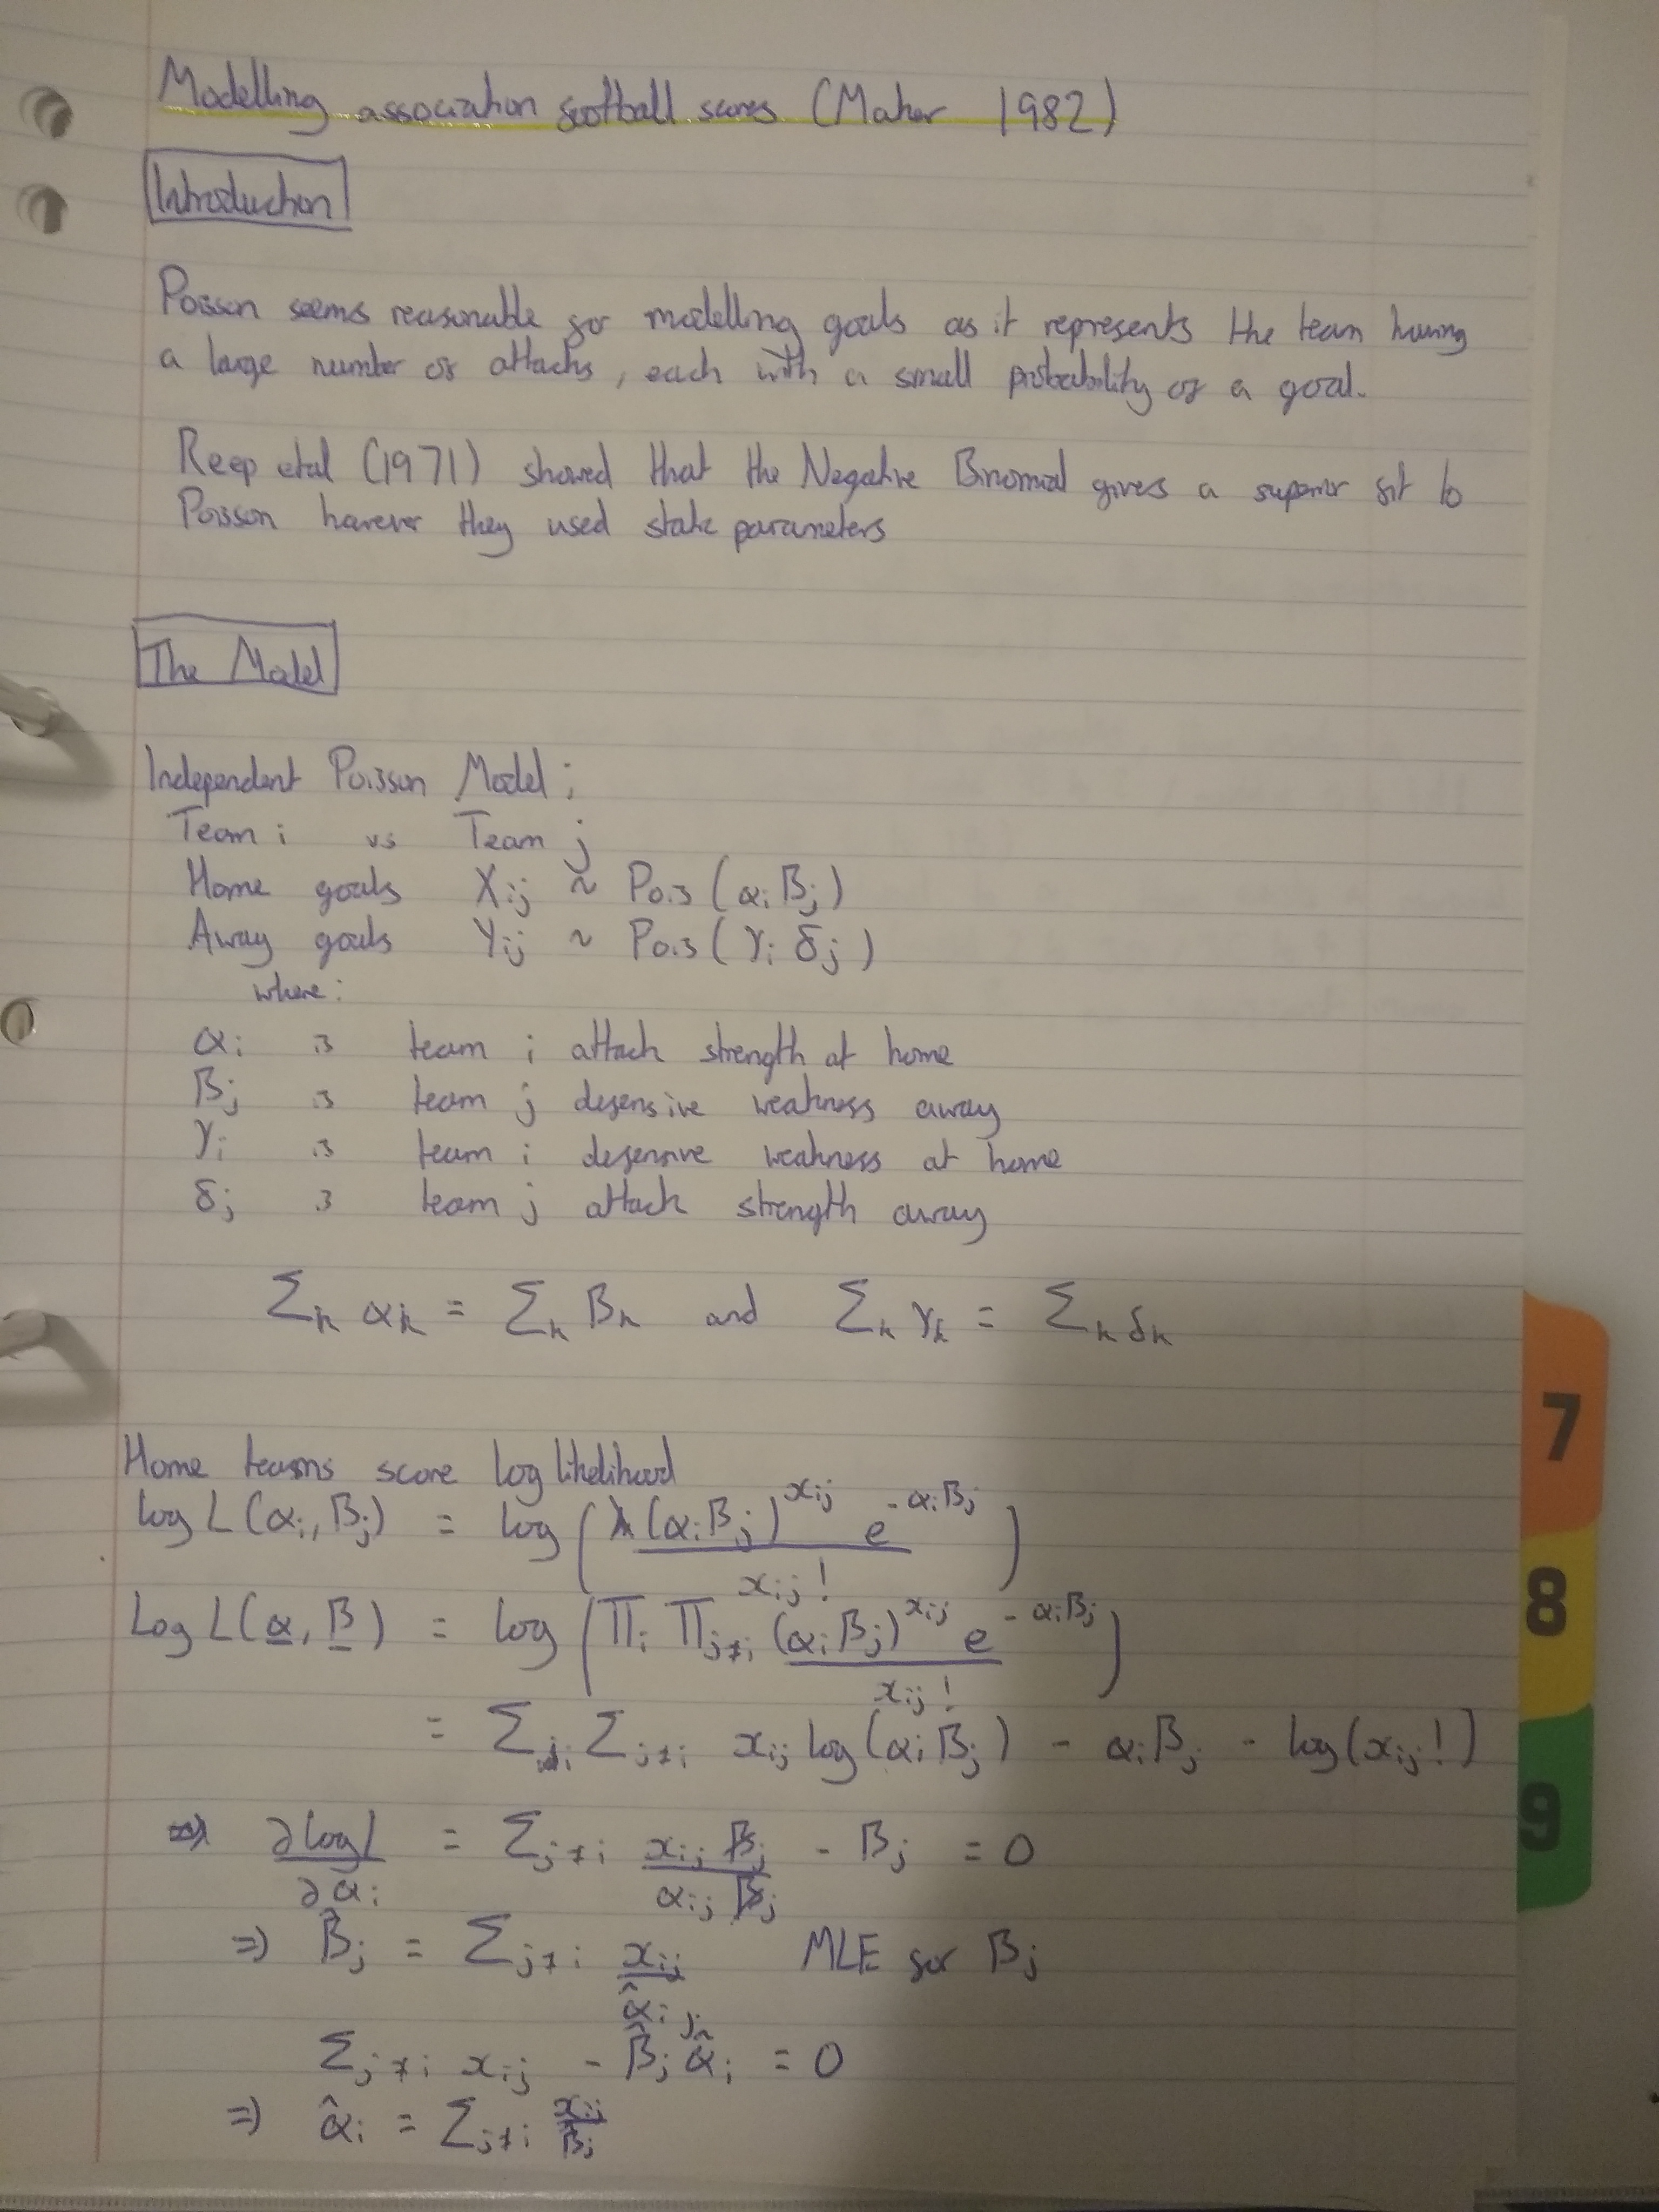 Modelling association football scores (Maher 1982)
Introduction
Poisson seems reasonable for modelling goals as it represents the team having
a large number of attacks, each with a small probability of a goal.
Reep etal (1971) showed that the Negative Binomial gives a superior fit to
Poisson however they used static parameters
The Model
Independent Poisson Model;
Team i vs Team j
Home goals Xij ~ Pois(αi βj)
Away goals Yij ~ Pois(γi δj)
where:
αi is team i attack strength at home
βj is team j defensive weakness away
γi is team i defensive weakness at home
δj is team j attack strength away
Σk αk = Σk βk and Σk γk = Σk δk
Home teams score log likelihood
log L(αi, βj) = log( (αi βj)^xij e^-αiβj / xij! )
Log L(α, β) = log( Πi Πj≠i (αi βj)^xij e^-αiβj / xij! )
= Σi Σj≠i xij log(αi βj) - αi βj - log(xij!)
⇒ ∂logL/∂αi = Σj≠i xij βj / αij βj - βj = 0
⇒ β̂j = Σj≠i xij / α̂i MLE for βj
Σj≠i xij - β̂j α̂i = 0
⇒ α̂i = Σj≠i xij / β̂j
7
8
9